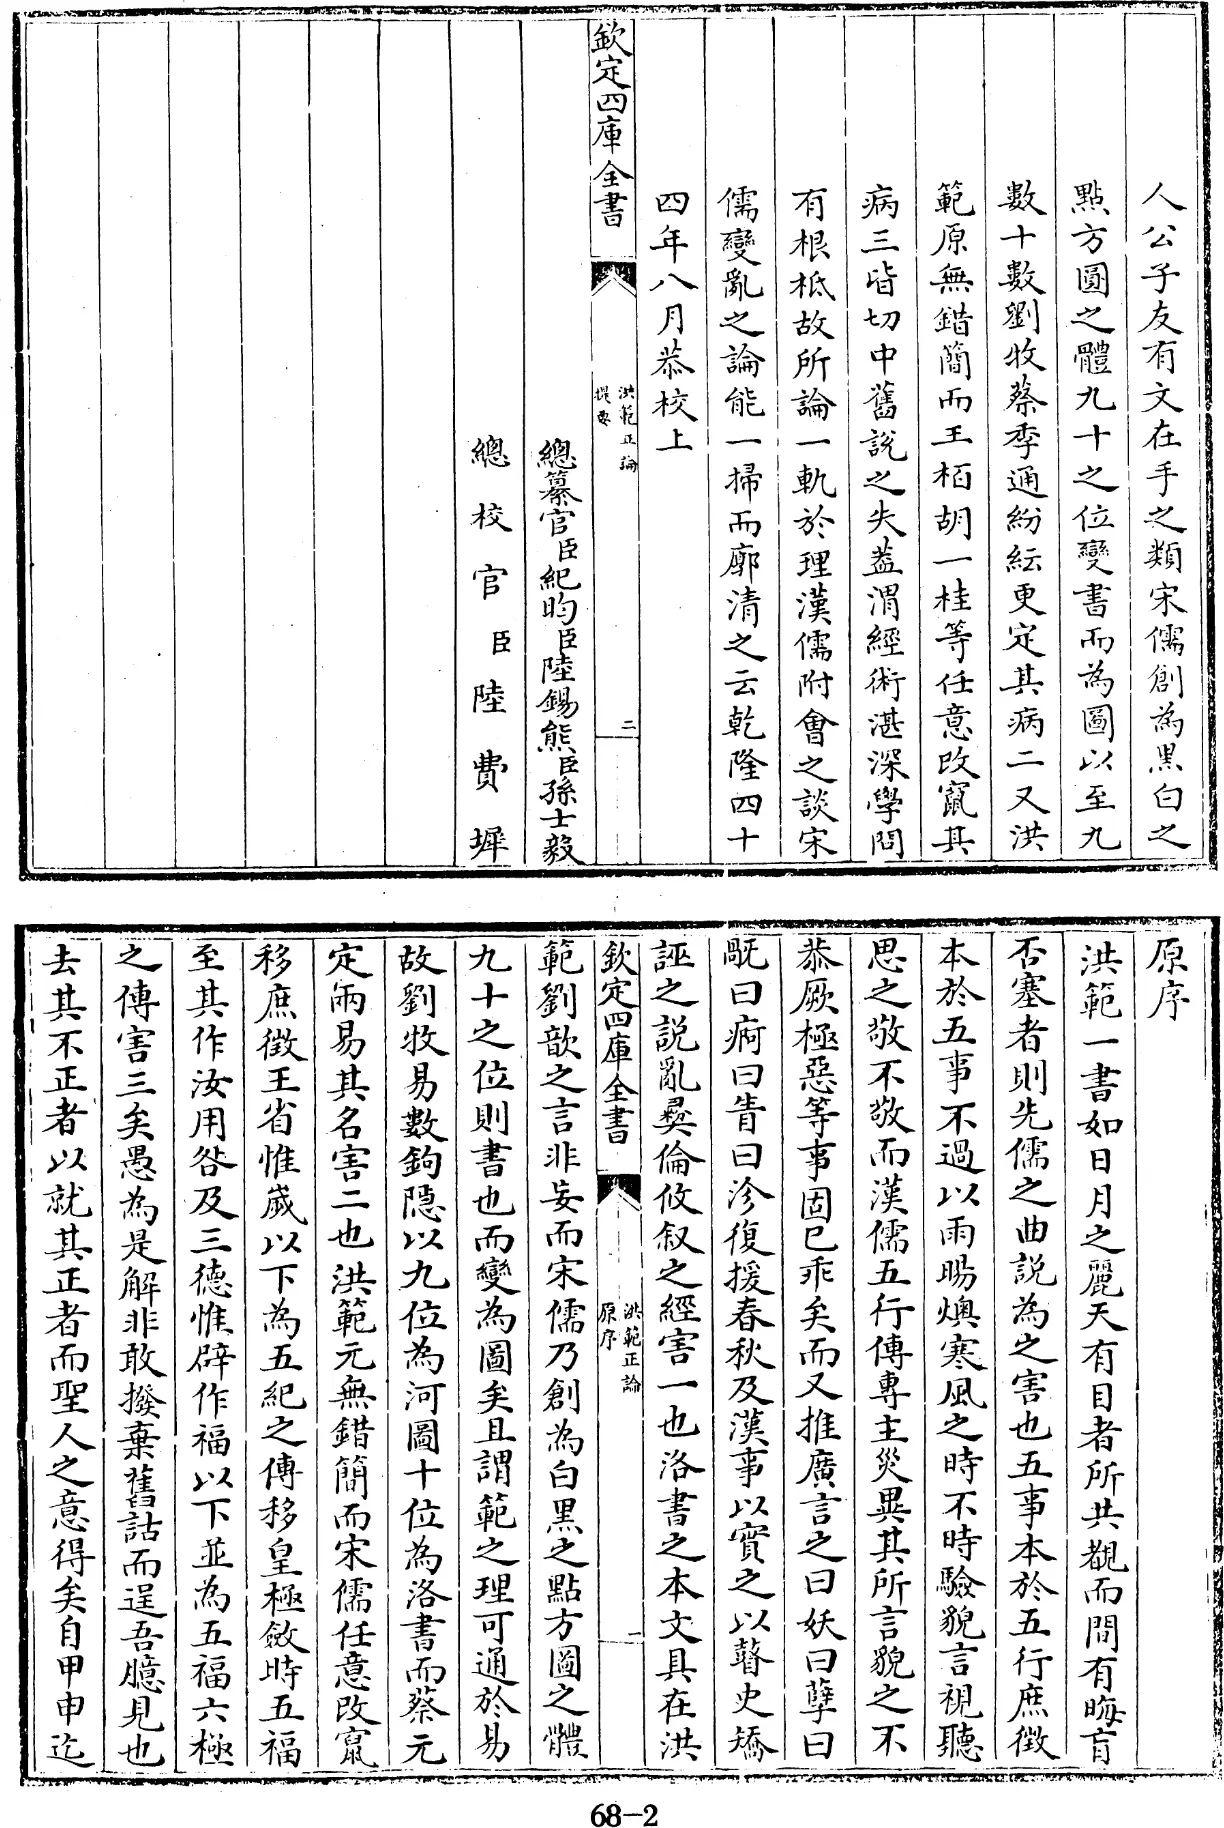 人公子友有文在手之類宋儒創為黒白之
㸃方圓之體九十之位變書而為圖以至九
數十數劉牧蔡季通紛紜更定其病二又洪
範原無錯簡而王柏胡一桂等任意改竄其
病三皆切中舊説之失葢渭經術湛深學問
有根柢故所論一軌於理漢儒附會之談宋
儒變亂之論能一掃而廓清之云乾隆四十
四年八月恭校上
欽定四庫全書
洪範正論
提要
二
總纂官臣紀昀臣陸錫熊臣孫士毅
總校官臣陸費墀
原序
洪範一書如日月之麗天有目者所共覩而間有晦盲
否塞者則先儒之曲説為之害也五事本於五行庶徴
本於五事不過以雨暘燠寒風之時不時驗貌言視聽
思之敬不敬而漢儒五行傳專主災異其所言貌之不
恭厥極惡等事固已乖矣而又推廣言之曰妖曰孽曰
旤曰痾曰眚曰沴復援春秋及漢事以實之以瞽史矯
誣之説亂彛倫攸敘之經害一也洛書之本文具在洪
欽定四庫全書
洪範正論
原序
一
範劉歆之言非妄而宋儒乃創為白黒之㸃方圓之體
九十之位則書也而變為圖矣且謂範之理可通於易
故劉牧易數鉤隠以九位為河圖十位為洛書而蔡元
定兩易其名害二也洪範元無錯簡而宋儒任意改竄
移庶徴王省惟嵗以下為五紀之傳移皇極斂時五福
至其作汝用咎及三德惟辟作福以下並為五福六極
之傳害三矣愚為是解非敢撥棄舊詁而逞吾臆見也
去其不正者以就其正者而聖人之意得矣自甲申迄
68-2